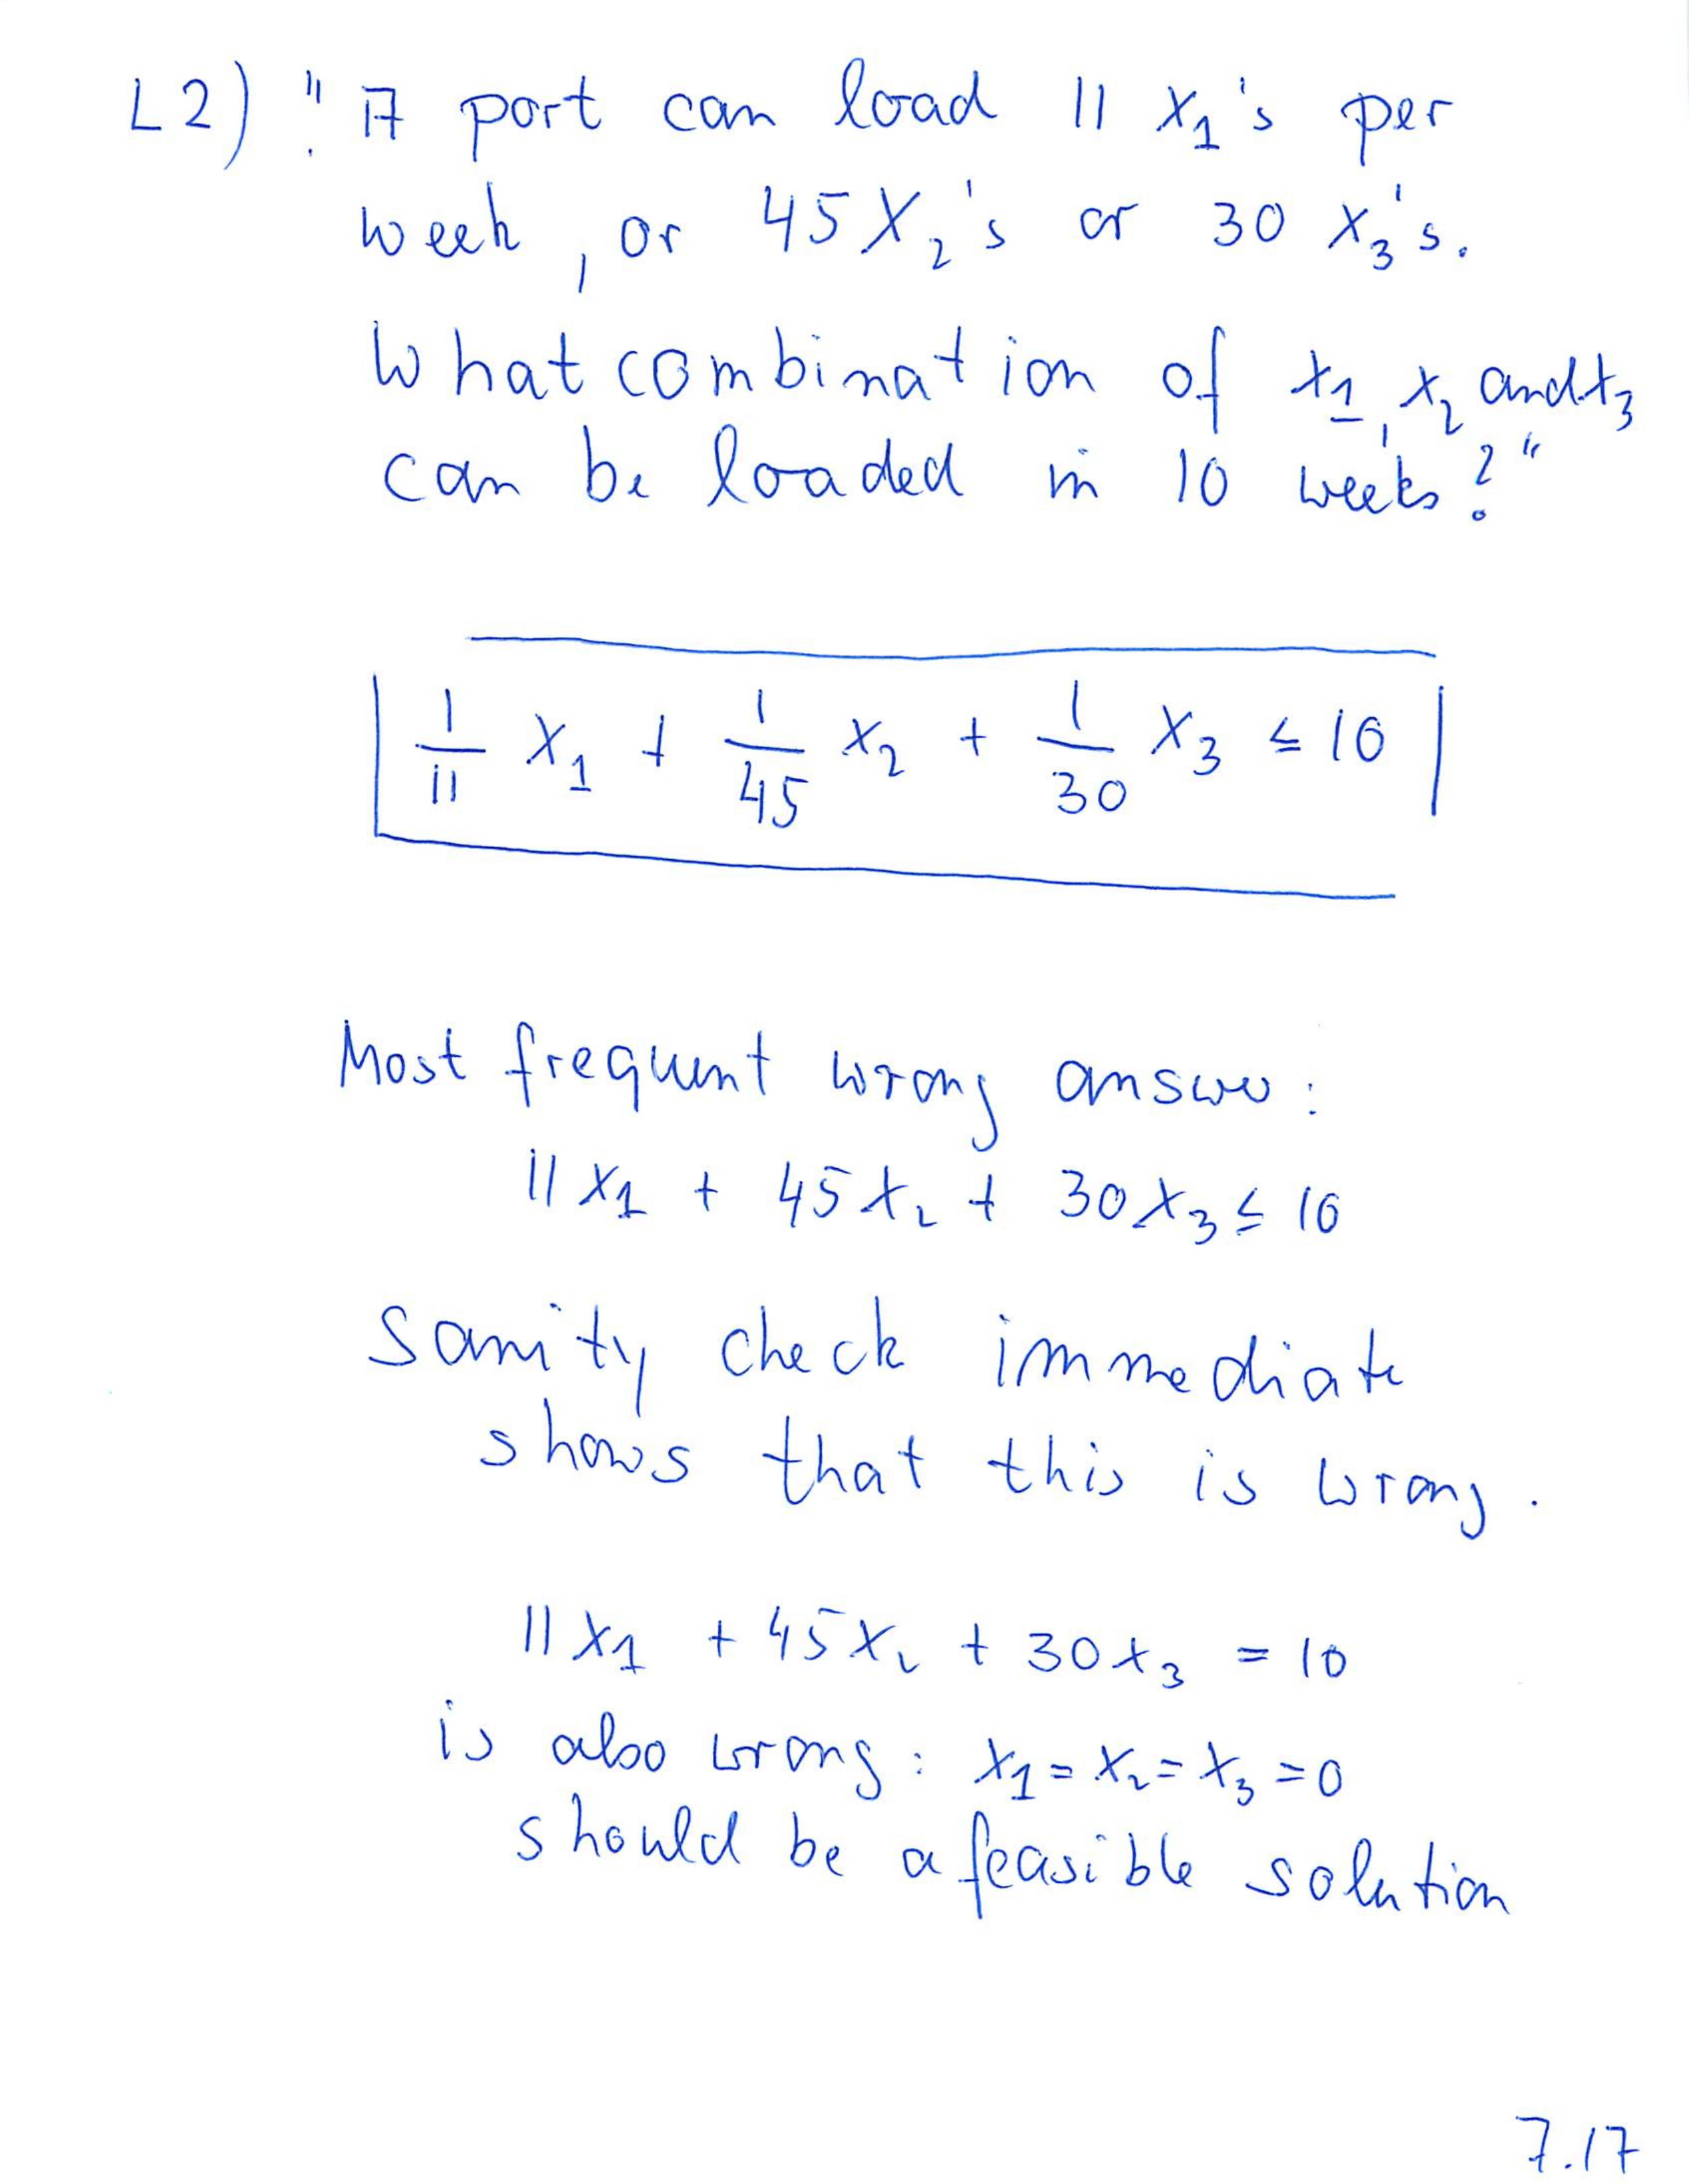 L2) " A port can load 11 x₁'s per
week, or 45 X₂'s or 30 x₃'s.
What combination of x₁, x₂ and x₃
can be loaded in 10 weeks?"
1/11 x₁ + 1/45 x₂ + 1/30 x₃ ≤ 10
Most frequent wrong answer:
11x₁ + 45x₂ + 30x₃ ≤ 10
Sanity check immediate
shows that this is wrong.
11x₁ + 45x₂ + 30x₃ = 10
is also wrong: x₁ = x₂ = x₃ = 0
should be a feasible solution
7.17